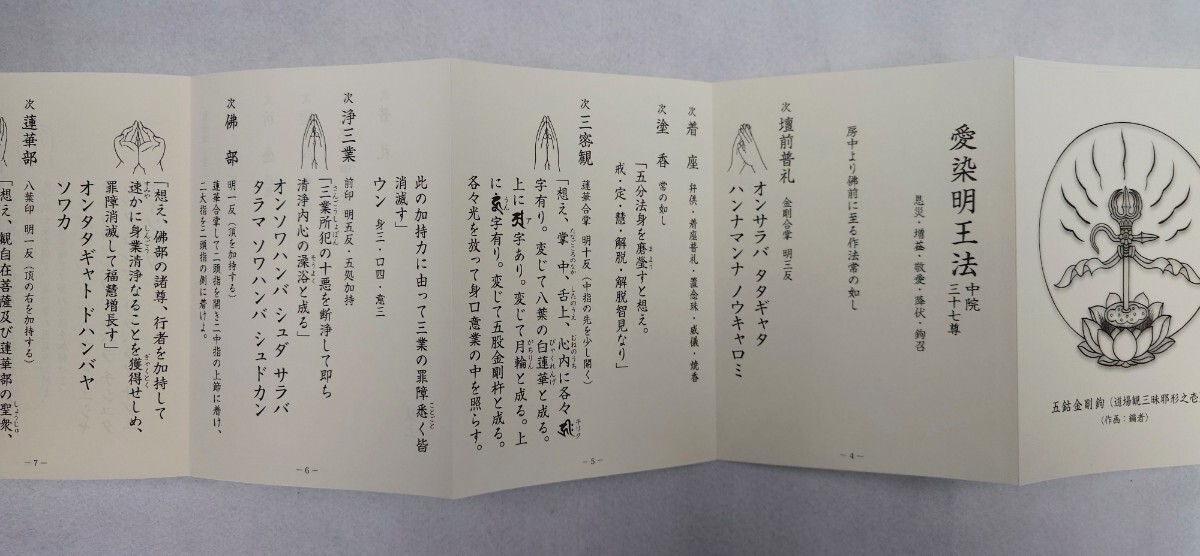 五鈷金剛鉤（道場観三昧耶形之壱
（作画：編者）
愛染明王法 中院 三十七尊
息災・増益・敬愛・降伏・鉤召
房中より佛前に至る作法常の如し
次 壇前普礼 金剛合掌 明三反
オンサラバ タタギャタ
ハンナマンナ ノウキャロミ
－4－
次 着座 弁供・着座普礼・置念珠・威儀・焼香
次 塗香 常の如し
「五分法身を磨瑩すと想え。
戒・定・慧・解脱・解脱智見なり」
次 三密観 蓮華合掌 明十反（中指の先を少し開く）
「想え、掌中、舌上、心内に各々
字有り。変じて八葉の白蓮華と成る。
上に字あり。変じて月輪と成る。上
に字有り。変じて五股金剛杵と成る。
各々光を放って身口意業の中を照らす。
－5－
此の加持力に由って三業の罪障悉く皆
消滅す」
ウン 身三・口四・意三
次 浄三業 前印 明五反・五処加持
「三業所犯の十悪を断浄して即ち
清浄内心の澡浴と成る」
オンソワハンバ シュダ サラバ
タラマ ソワハンバ シュドカン
次 佛部 明一反（頂を加持する）
蓮華合掌して二頭指を開き二中指の上節に着け、
二大指を二頭指の側に着けよ。
－6－
「想え、佛部の諸尊、行者を加持して
速かに身業清浄なることを獲得せしめ、
罪障消滅して福慧増長す」
オンタタギャト ドハンバヤ
ソワカ
次 蓮華部 八葉印 明一反（頂の右を加持する）
「想え、観自在菩薩及び蓮華部の聖衆、
－7－